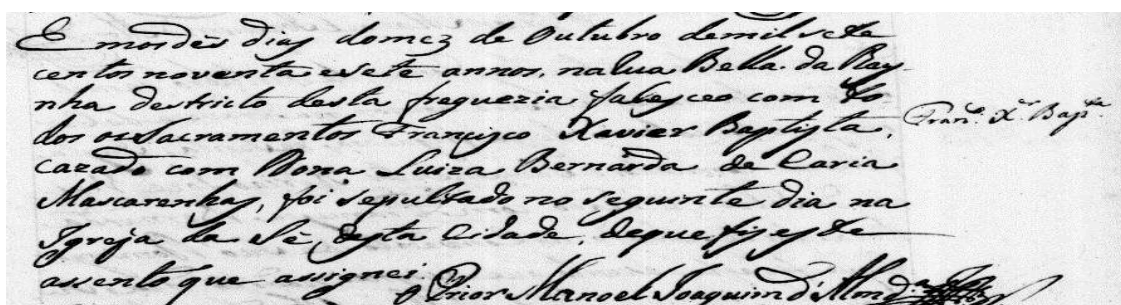 Emos dês dias domez de Outubro demil sete
centos noventa esete annos, na Rua Bella da Ray-
nha destricto desta freguezia falesceo com to-
dos os Sacramentos Francisco Xavier Baptista,
Fran.co X.er Bap.ta
cazado com Dona Luiza Bernarda de Caria
Mascarenhas, foi sepultado no seguinte dia na
Igreja da Sé desta Cidade, deque fis este
assento que assignei.
O Prior Manoel Joaquim d'